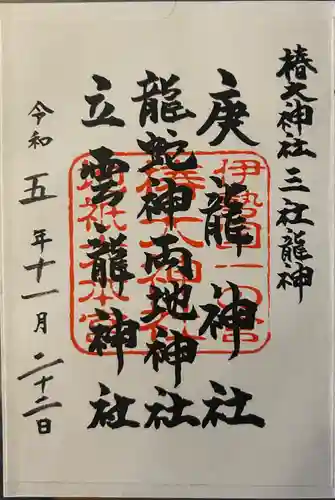 椿大神社 三社龍神
庚龍神社
龍蛇神両地神社
立雲龍神社
令和五年十一月二十二日
伊勢国一の宮
椿大神社